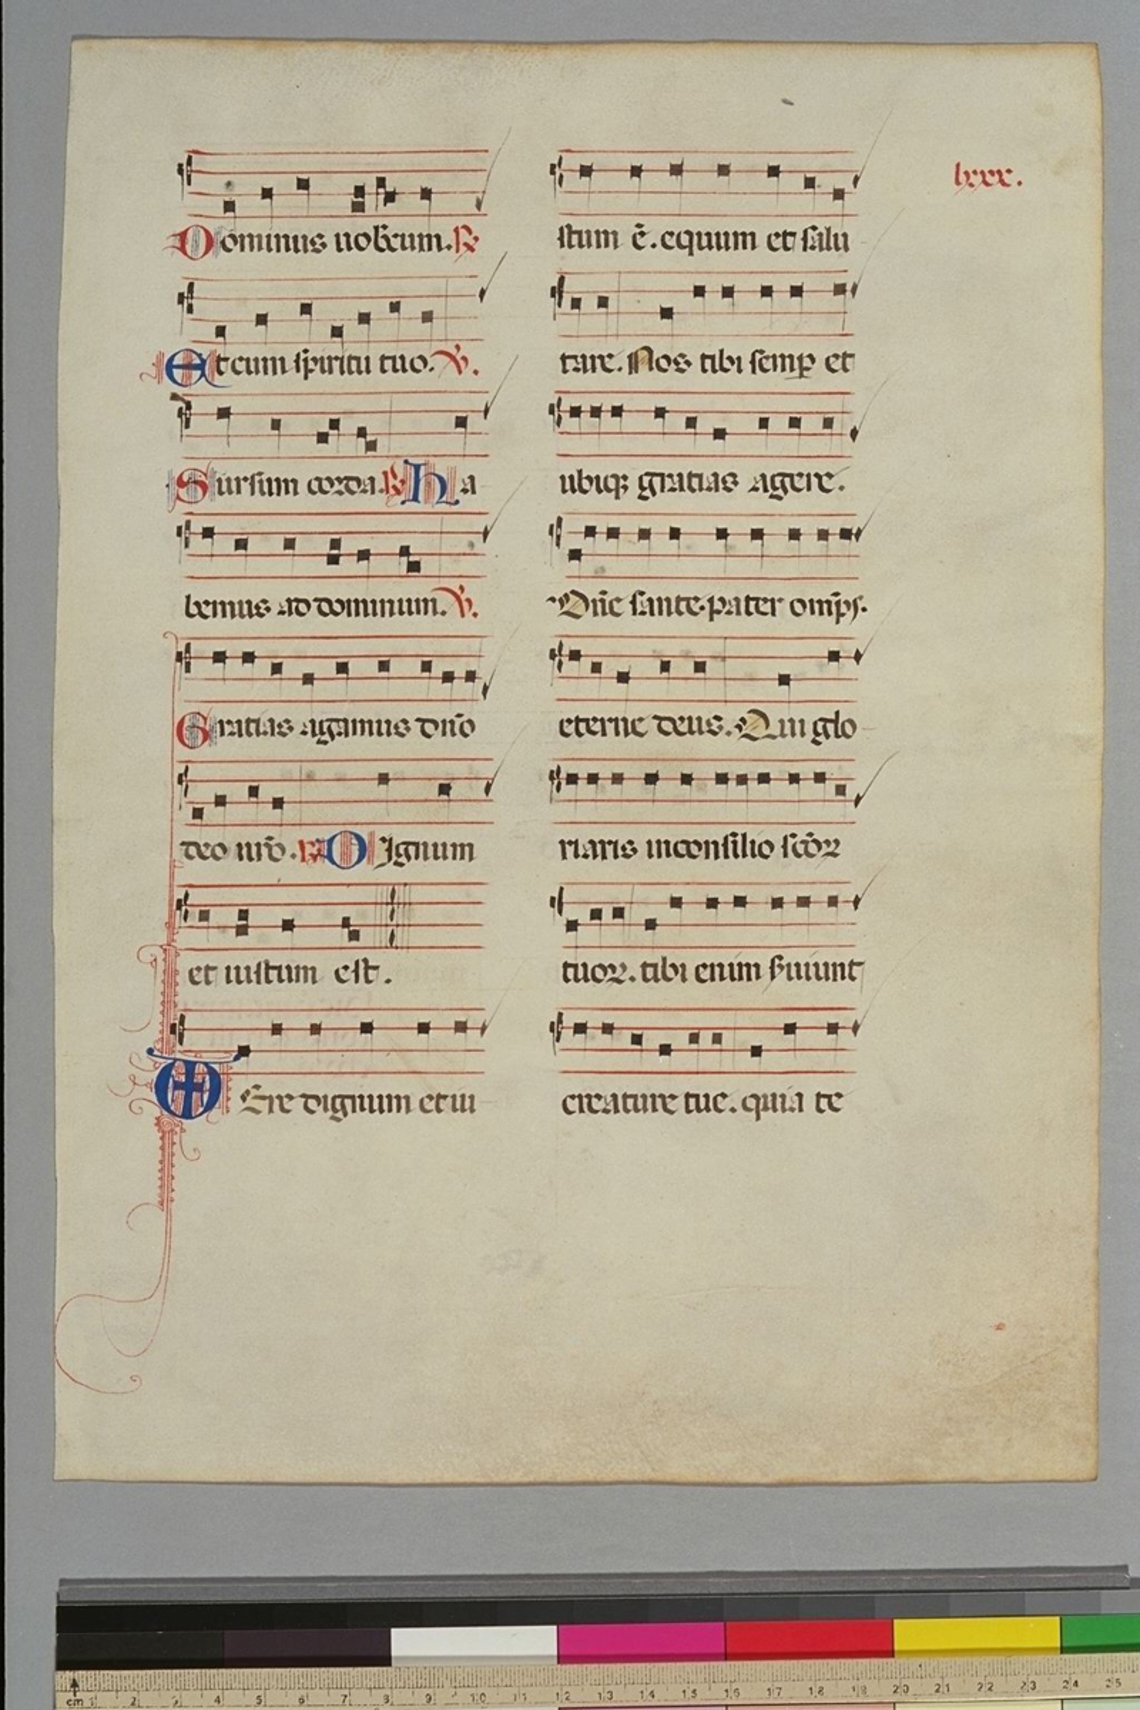 Dominus uobcum. ℟
Et cum spiritu tuo. ℣.
Sursum corda. ℟ Ha
bemus ad dominum. ℣.
Gratias agamus dño
deo nr̃o. ℟ Dignum
et iustum est.
Vere dignum et iu
stum ẽ. equum et salu
tare. Nos tibi semp̲ et
ubiqꝫ gratias agere.
Dñe sante. pater omp̃s.
eterne deus. Qui glo
riaris in consilio scõꝝ
tuoꝝ. tibi enim s̃uiunt
creature tue. quia te
lxxx.
cm 1 2 3 4 5 6 7 8 9 10 11 12 13 14 15 16 17 18 19 20 21 22 23 24 25